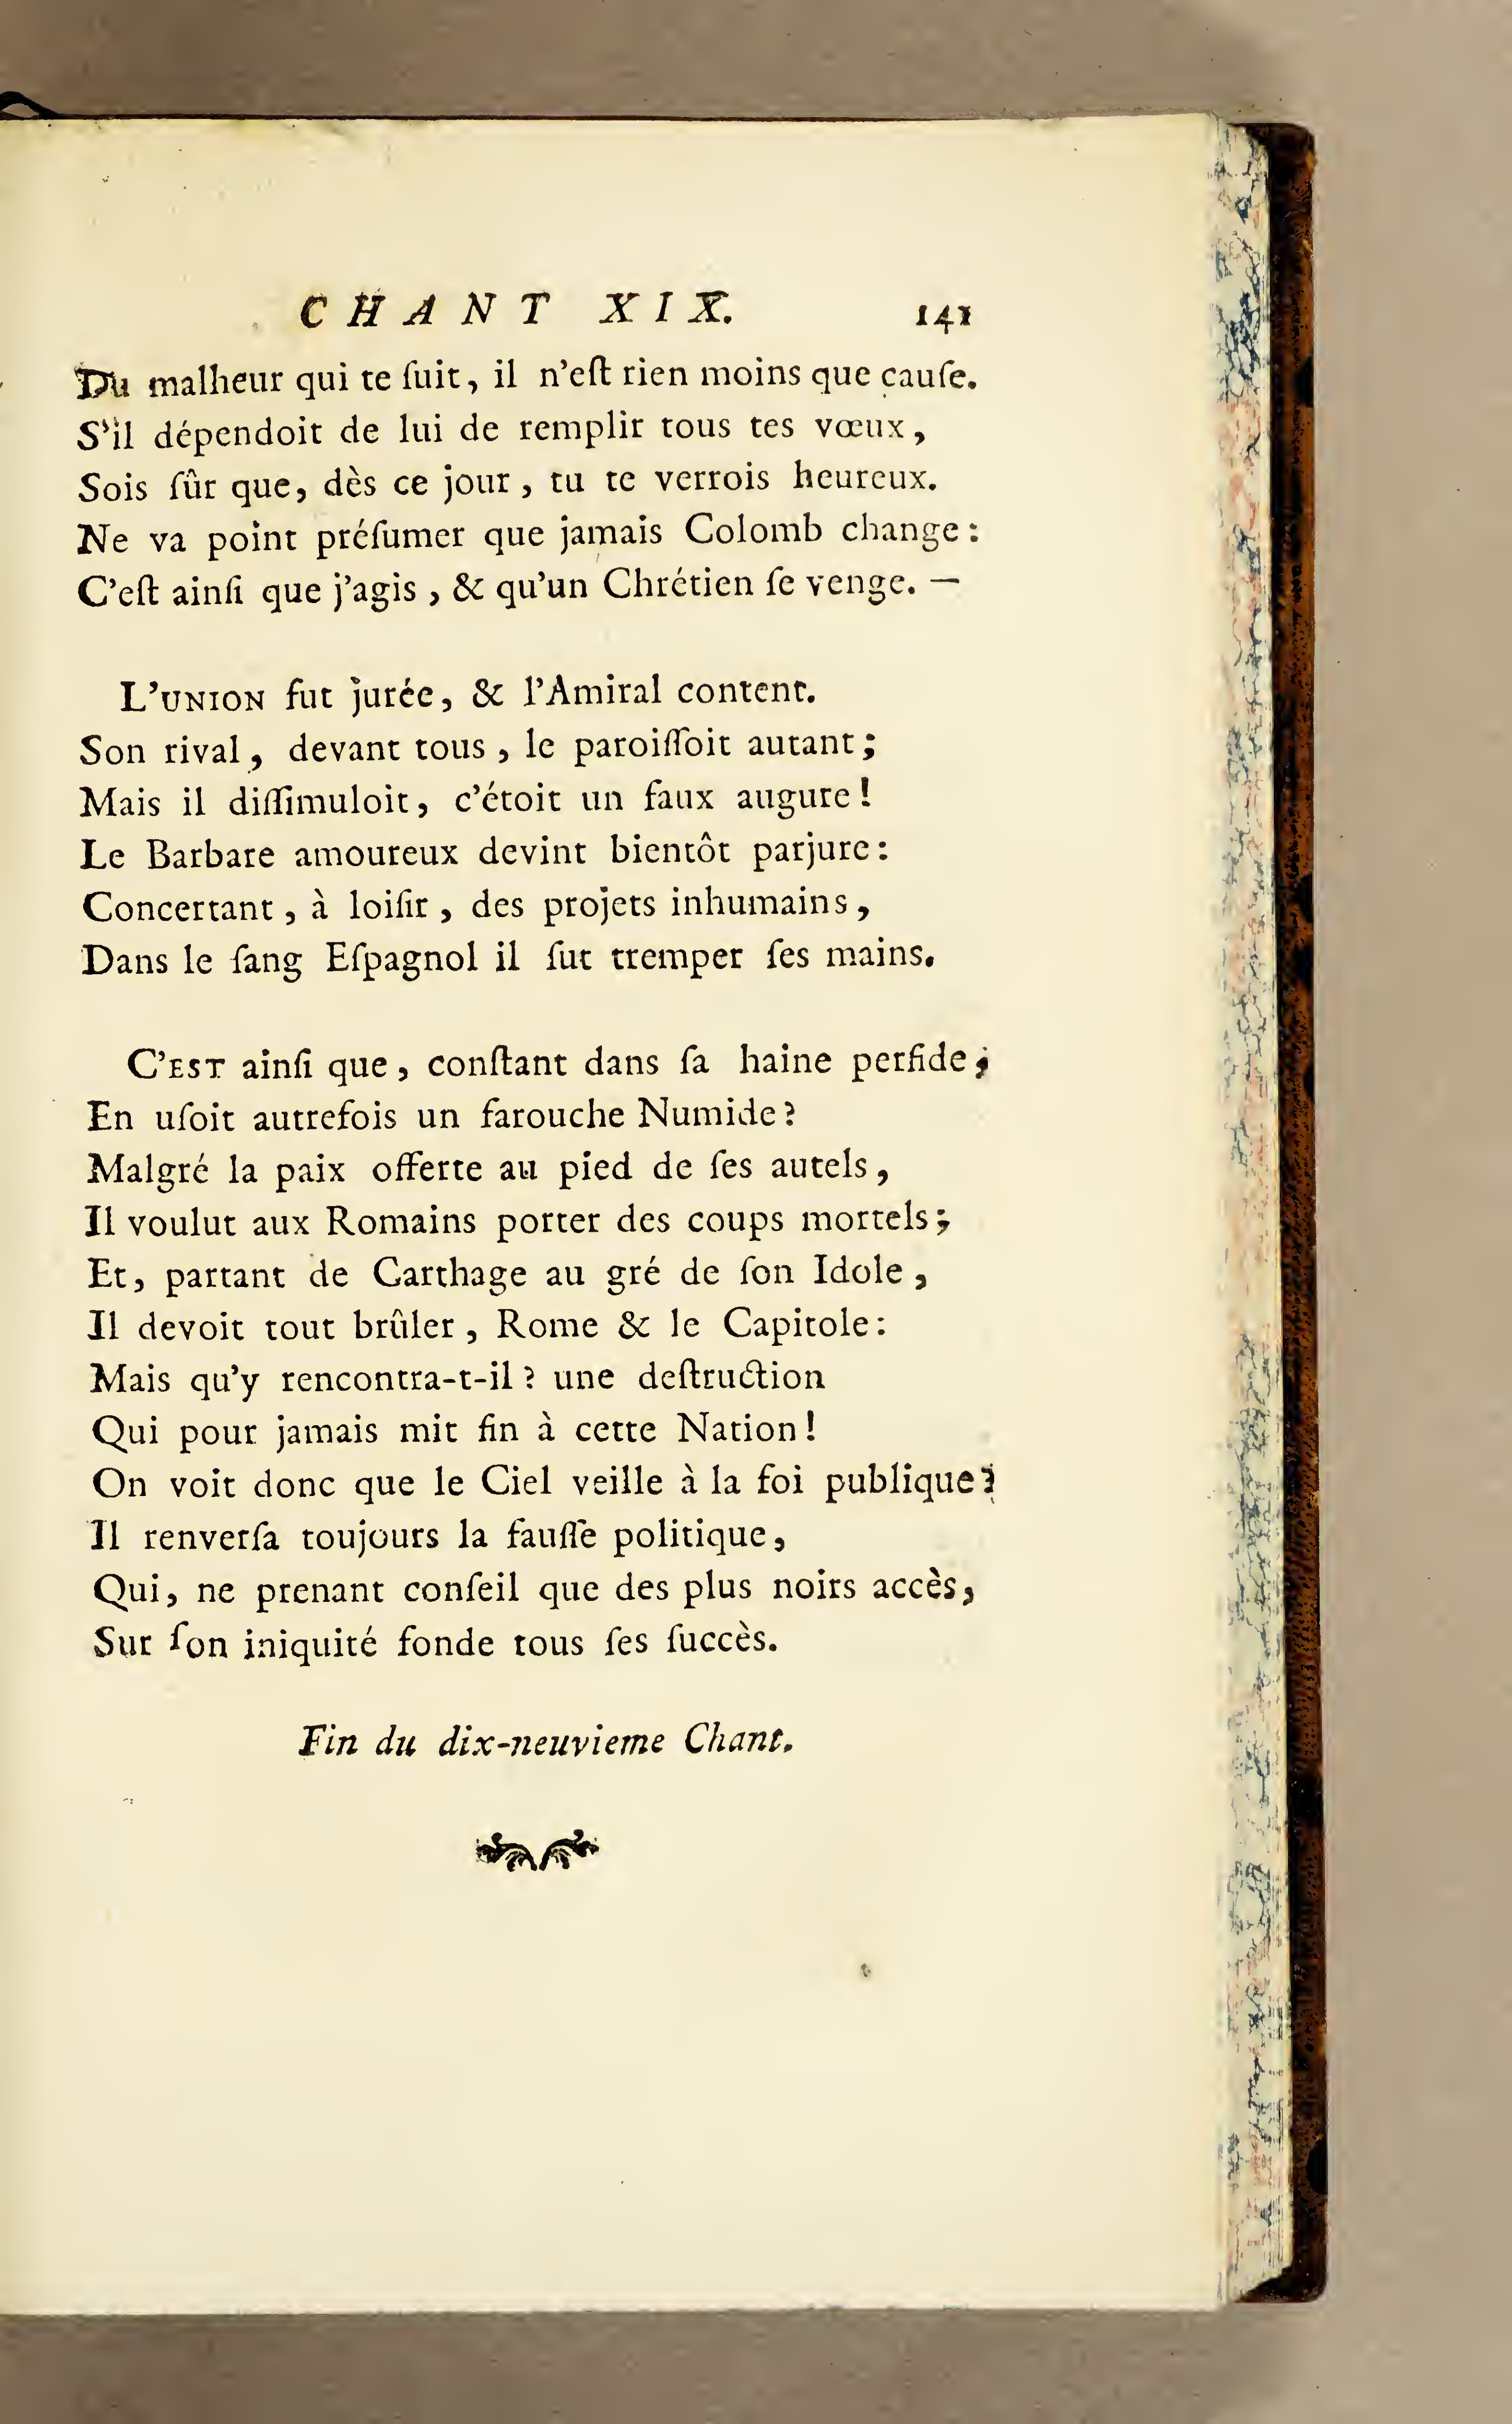 CHANT XIX. 141
Du malheur qui te ſuit, il n'eſt rien moins que cauſe.
S'il dépendoit de lui de remplir tous tes vœux,
Sois ſûr que, dès ce jour, tu te verrois heureux.
Ne va point préſumer que jamais Colomb change:
C'eſt ainſi que j'agis, & qu'un Chrétien ſe venge. —
L'UNION fut jurée, & l'Amiral content.
Son rival, devant tous, le paroiſſoit autant;
Mais il diſſimuloit, c'étoit un faux augure!
Le Barbare amoureux devint bientôt parjure:
Concertant, à loiſir, des projets inhumains,
Dans le ſang Eſpagnol il ſut tremper ſes mains.
C'EST ainſi que, conſtant dans ſa haine perfide;
En uſoit autrefois un farouche Numide?
Malgré la paix offerte au pied de ſes autels,
Il voulut aux Romains porter des coups mortels;
Et, partant de Carthage au gré de ſon Idole,
Il devoit tout brûler, Rome & le Capitole:
Mais qu'y rencontra-t-il? une deſtruction
Qui pour jamais mit fin à cette Nation!
On voit donc que le Ciel veille à la foi publique?
Il renverſa toujours la fauſſe politique,
Qui, ne prenant conſeil que des plus noirs accès,
Sur ſon iniquité fonde tous ſes ſuccès.
Fin du dix-neuvieme Chant.